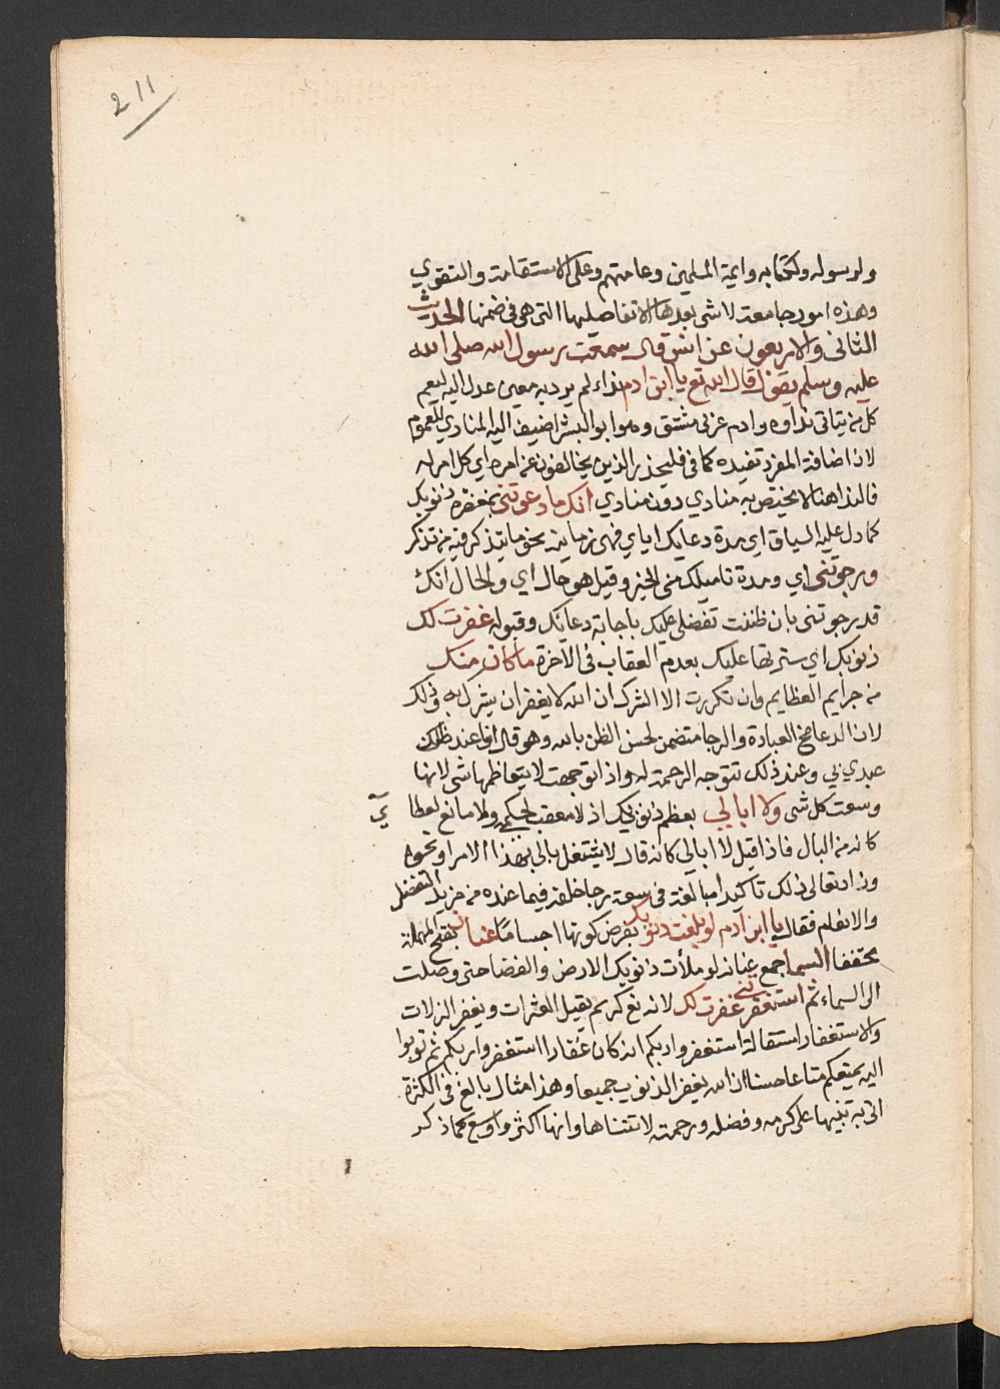 211
ولرسوله ولكتابه وايمة المسلمين وعامتهم وعلى الاستقامة والتقوي
وهذه امور جامعة لا شى بعدها الا تفاصيلها التى هى فى ضمنها الحديث
الثانى والاربعون عن انس قال سمعت رسول الله صلى الله
عليه وسلم يقول قال الله تع يا ابن ادم نداء لم يرد به معين عدل اليه ليعم
كل من يتاتى نداوه وادم عربى مشتق وهو ابو البشر اضيف اليه المنادي للعموم
لان اضافة المفرد تفيده كما فى فليحذر الذين يخالفون عن امره اي كل امر له
فالندا هنا لا يختص به منادي دون منادي انك ما دعوتنى بمغفرة ذنوبك
كما دل عليه السياق اي مدة دعايك اياي فهى زمانية نحو ما يتذكر فيه من تذكر
ورجوتنى اي ومدة تاميلك منى الخير وقيل هو حال اي والحال انك
قد رجوتنى بان ظننت تفضلى عليك باجابة دعائك وقبوله غفرت لك
ذنوبك اي سترتها عليك بعدم العقاب فى الآخرة ما كان منك
من جرايم العظايم وان تكررت الا الشرك ان الله لا يغفر ان يشرك به وذلك
لان الدعا مخ العبادة والرجا متضمن لحسن الظن بالله وهو قال انا عند ظن
عبدي بي وعند ذلك تتوجه الرحمة له واذا توجهت لا يتعاظمها شى لانها
وسعت كل شى ولا ابالي بعظم ذنوبك اذ لا معقب لحكمه ولا مانع لعطا
ئي
كانه من البال فاذا قيل لا ابالي كانه قال لا يشتغل بالي بهذا الامر او نحوه
وزاد تعالى ذلك تاكيدا مبالغة فى سعة رجا خلقه فيما عنده من مزيد التفضل
والانعام فقال يا ابن آدم لو بلغت ذنوبك بفرض كونها اجساما عنان بفتح المهملة
مخففا السما جمع عنانه لو ملأت ذنوبك الارض والفضا حتى وصلت
الى السماء ثم استغفرتنى غفرت لك لانه تع كريم يقيل العثرات ويغفر الزلات
والاستغفار استقالة استغفروا ربكم انه كان غفارا استغفروا ربكم ثم توبوا
اليه يمتعكم متاعا حسنا ان الله يغفر الذنوب جميعا وهذا مثال بالغ فى الكثرة
اتى به تنبيها على كرمه وفضله ورحمته لا تتناها وانها اكثر واوسع مما ذكر